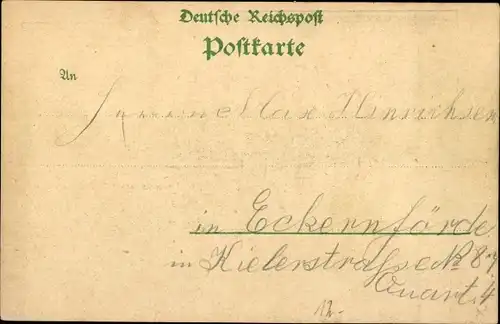 Deutsche Reichspost
Postkarte
An
Hinrichsen
in Eckernförde
in Kielerstraße № 87
Quart. 4
12.-